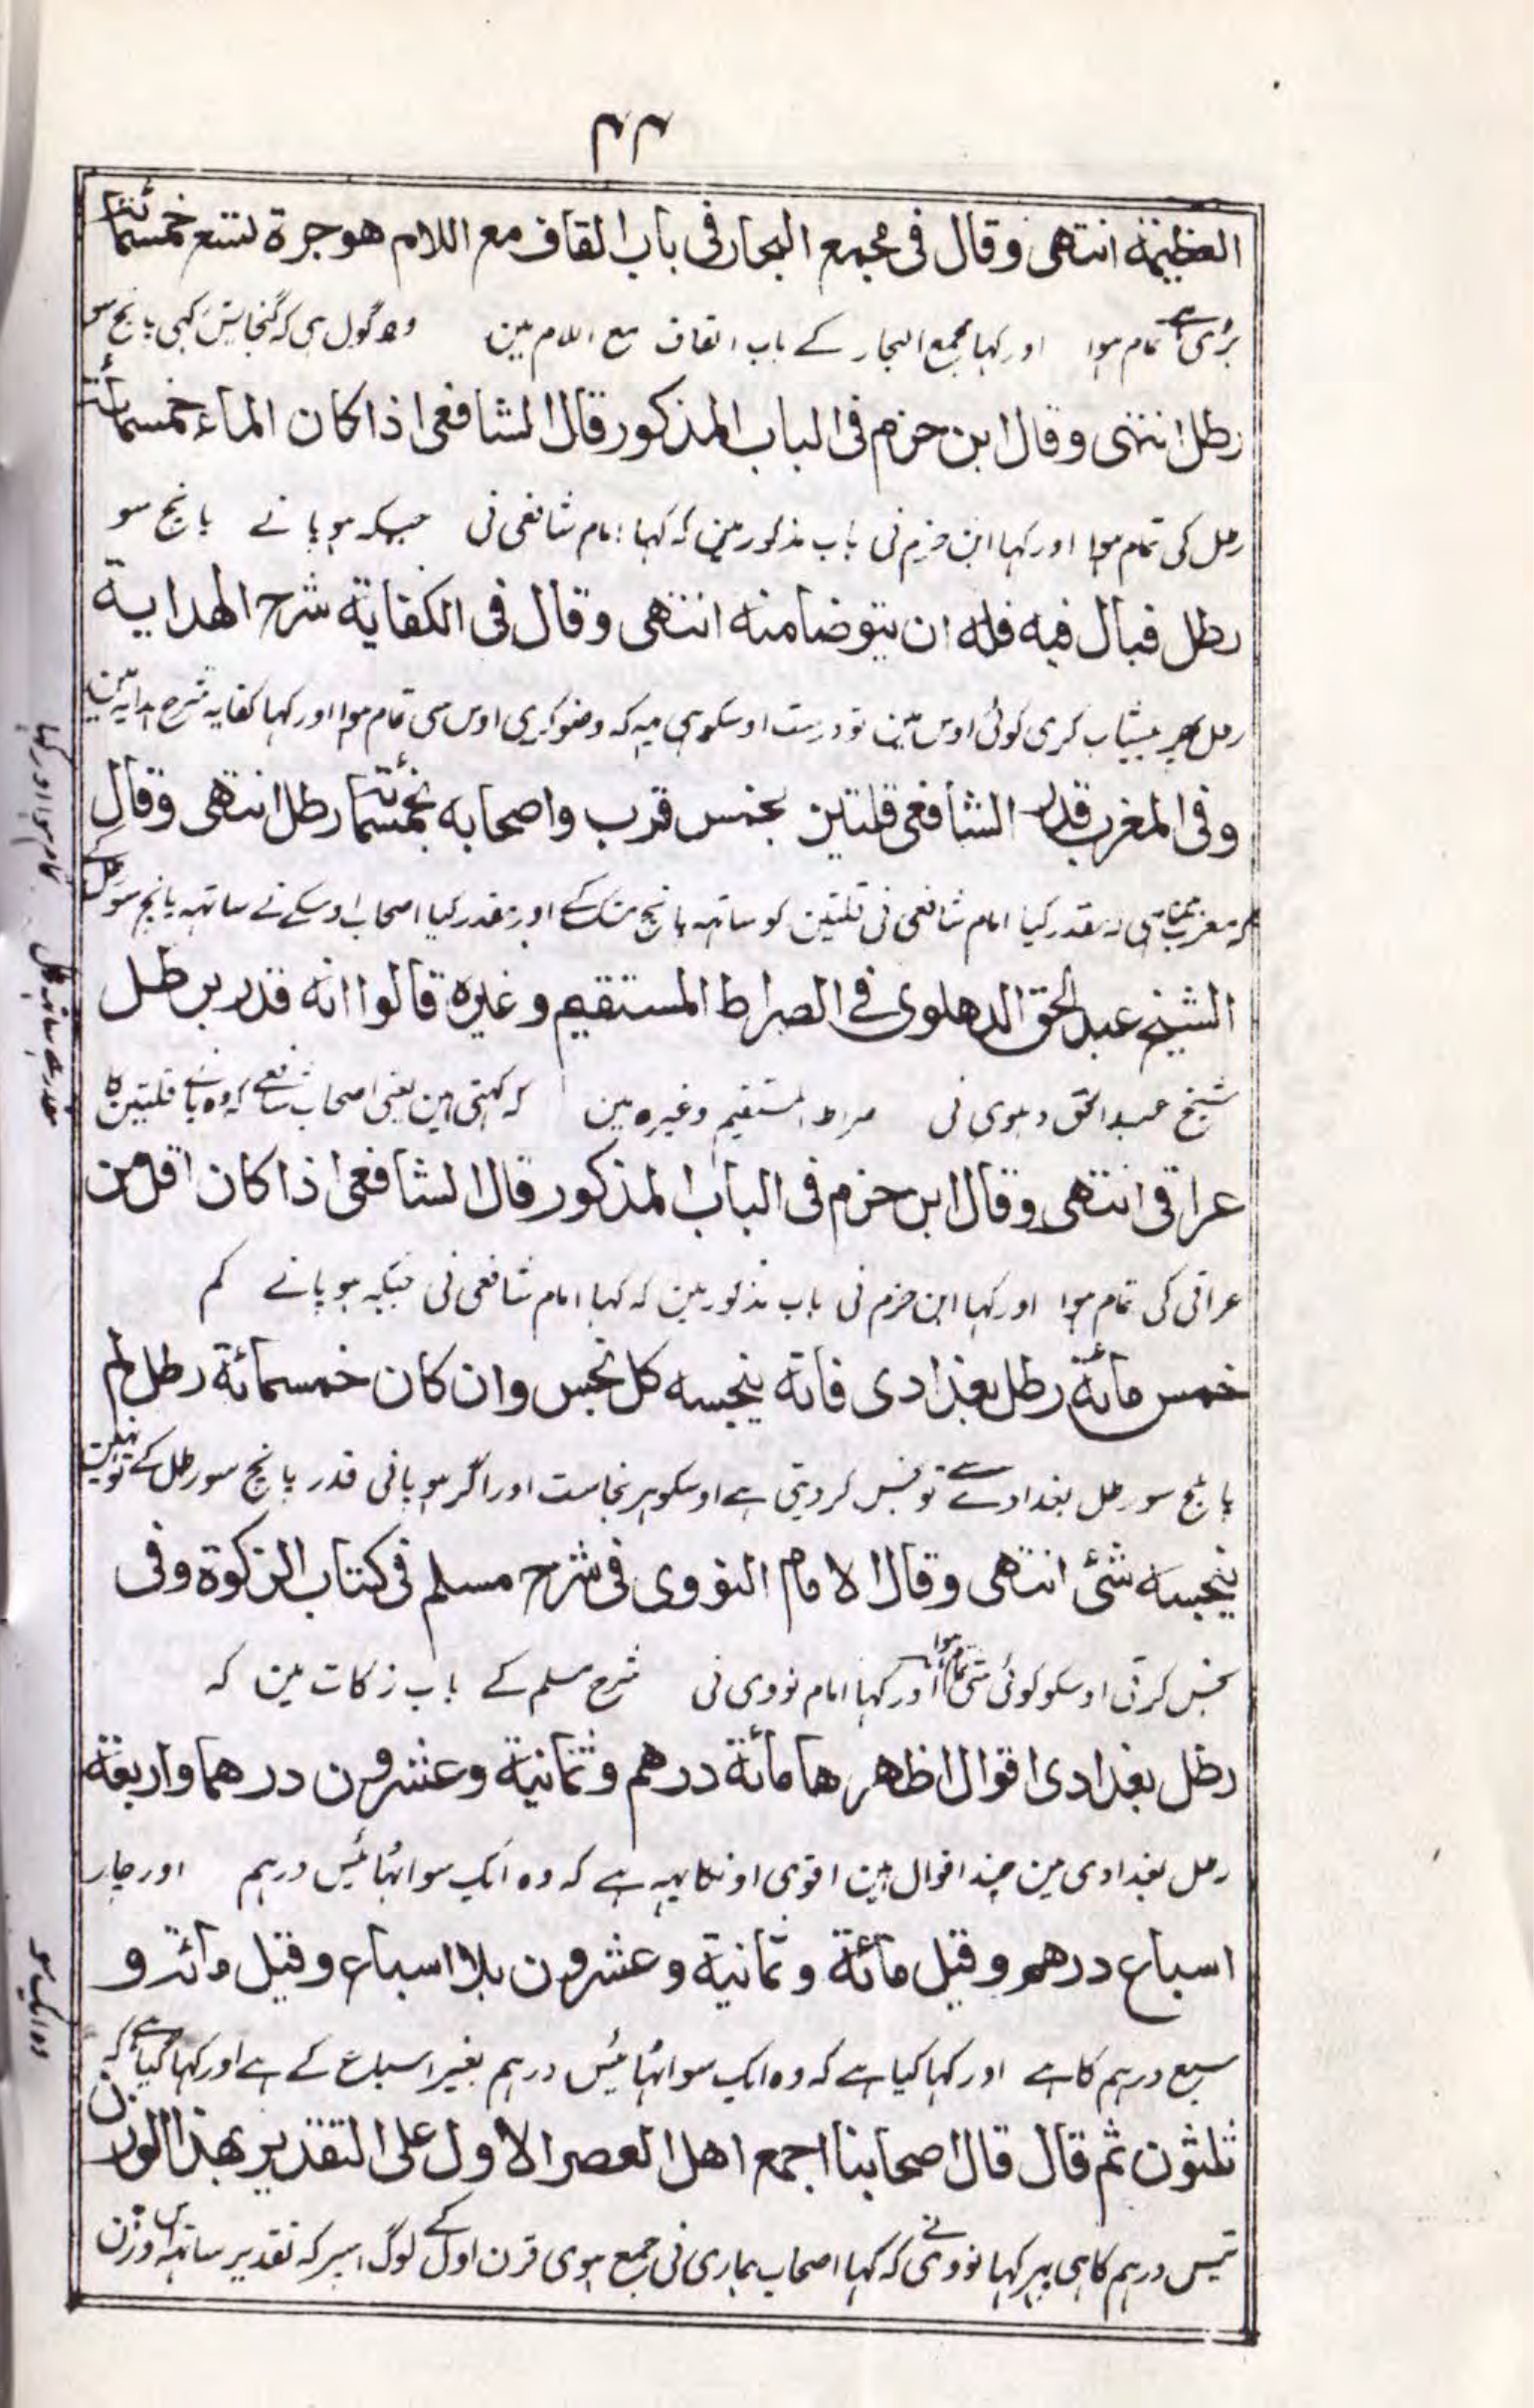 ۴۴
العظیمة انتهی وقال فی مجمع البحار فی باب القاف مع اللام هو جرة تسع خمسمائة
بڑی ہے تمام ہوا اور کہا مجمع البحار کے باب القاف مع اللام مین وہ گول ہی کہ گنجایش رکہی پانچ سو
رطل انتهی وقال ابن حزم فی الباب المذکور قال الشافعی اذا کان الماء خمسمائة
رطل کی تمام ہوا اور کہا ابن حزم نی باب مذکور مین کہ کہا امام شافعی نی جبکہ ہو پانے پانچ سو
رطل فبال فیه فله ان یتوضا منه انتهی وقال فی الکفایة شرح الهدایة
رطل پہر پیشاب کری کوئی اوس مین تو درست اوسکو ہی یہ کہ وضو کری اوس سی تمام ہوا اور کہا کفایہ شرح ہدایہ مین
وفی المغرب قدر الشافعی قلتین بخمس قرب واصحابه بخمسمائة رطل انتهی وقال
کہ مغرب مین ہی کہ مقدر کیا امام شافعی نی قلتین کو ساتہہ پانچ مشک کے اور مقدر کیا اصحاب اوسکے نے ساتہہ پانچ سو رطل کے
الشیخ عبد الحق الدهلوی فی الصراط المستقیم وغیره قالوا انه قدر برطل
شیخ عبد الحق دہلوی نی صراط المستقیم وغیرہ مین کہ کہتی ہین یعنی اصحاب شافعی کہ وہ پانے قلتین کا
عراقی انتهی وقال ابن حزم فی الباب المذکور قال الشافعی اذا کان اقل من
عراقی کی تمام ہوا اور کہا ابن حزم نی باب مذکور مین کہ کہا امام شافعی نی جبکہ ہو پانے کم
خمس مائة رطل بغدادی فانه ینجسه کل نجس وان کان خمسمائة رطل لم
پانچ سو رطل بغداد سے تو نجس کر دیتی ہے اوسکو ہر نجاست اور اگر ہو پانی قدر پانچ سو رطل کے تو نہین
ینجسه شئ انتهی وقال الامام النووی فی شرح مسلم فی کتاب الزکوة وفی
نجس کرتی اوسکو کوئی شی تمام ہوا اور کہا امام نووی نی شرح مسلم کے باب زکات مین کہ
رطل بغدادی اقوال اظهرها مائة درهم وثمانیة وعشرون درهما واربعة
رطل بغدادی مین چند اقوال ہین اقوی اونکا یہہ ہے کہ وہ ایک سو اٹہائیس درہم اور چار
اسباع درهم وقیل مائة وثمانیة وعشرون بلا اسباع وقیل مائة و
سبع درہم کا ہے اور کہا کیا ہے کہ وہ ایک سو اٹہائیس درہم بغیر اسباع کے ہے اور کہا گیا ہے کہ
ثلثون ثم قال قال اصحابنا اجمع اهل العصر الاول علی التقدیر بهذا الوزن
تیس درہم کا ہی پہر کہا نووی نے کہ کہا اصحاب ہماری نی جمع ہوی قرن اول کے لوگ اسپر کہ تقدیر ساتہہ اس وزن
تمام ہوا اور کہا
وہ ایک سو